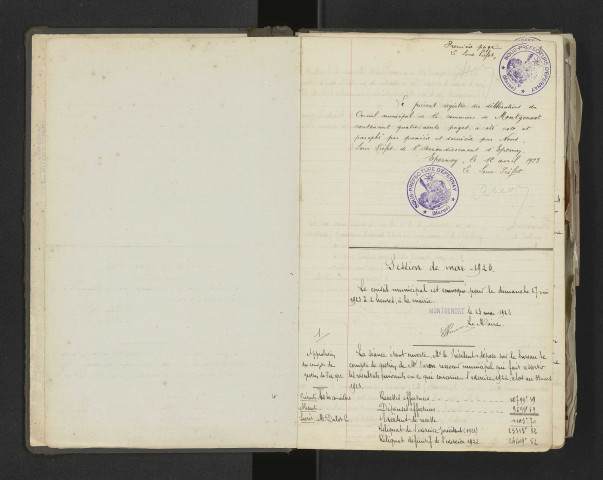 Première page
Le Sous-Préfet
SOUS-PRÉFECTURE D'EPERNAY
Le présent registre des délibérations du
Conseil municipal de la commune de Montgenost
contenant quatre cents pages, a été coté et
paraphé par première et dernière par Nous,
Sous-Préfet de l'arrondissement d'Epernay
Epernay, le 12 avril 1923
Le Sous-Préfet
SOUS-PRÉFECTURE D'EPERNAY
(Marne)
Session de mai 1923.
Le conseil municipal est convoqué pour le dimanche 27 mai
1923 à 2 heures, à la mairie.
MONTGENOST le 23 mai 1923
Le Maire
1
Approbation
du compte de
gestion de
La séance étant ouverte, Mr le Président dépose sur le bureau le
compte de gestion de Mr receveur municipal qui fait ressortir
les résultats suivants en ce qui concerne l'exercice 1922, clos au 31 mars
1923.
Recettes effectuées
Dépenses effectuées
Excédent de recette
Reliquat de l'exercice précédent (1921)
Reliquat définitif de l'exercice 1922